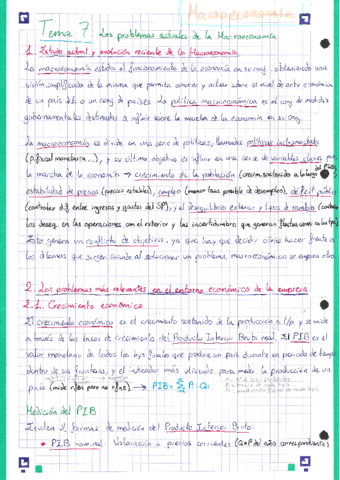 Macroeconomía
Tema 7. Los problemas actuales de la Macroeconomía
1. Estado actual y evolución reciente de la Macroeconomía
La macroeconomía estudia el funcionamiento de la economía en su conj. obteniendo una
visión simplificada de la misma que permita conocer y actuar sobre el nivel de activ económica
de un país dado o un conj. de países. La política macroeconómica es el conj de medidas
gubernamentales destinadas a influir sobre la marcha de la economía en su conj.
La macroeconomía es divide en una serie de políticas, llamadas políticas instrumentales
(p. fiscal, monetaria...), y su último objetivo es influir en una serie de variables claves para
la marcha de la economía → crecimiento de la población (crecim. sostenido a largo
estabilidad de precios (precios estables), empleo (menor tasa posible de desempleo), déficit público
(controlar dif. entre ingresos y gastos del SP), y el desequilibrio exterior y tipos de cambio
los deseq. en las operaciones con el exterior y las incertidumbres que generan
Esto genera un conflicto de objetivos, ya que hay que decidir cómo hacer frente a
los dilemas que surgen cuando al solucionar un problema macroeconómico se empeora otro
2. Los problemas más relevantes en el entorno económico de la empresa
2.1. Crecimiento económico
El crecimiento económico es el crecimiento sostenido de la producción a l/p y se mide
a través de las tasas de crecimiento del Producto Interior Bruto real. El PIB es el
valor monetario de todos los bys finales que produce un país durante un período de tiempo
dentro de sus fronteras, y el indicador más utilizado para medir la producción de un
país (mide r/den pero no r/nze) → PIB = Σ Pi · Qi
Medición del PIB
Existen 2 formas de medición del Producto Interior Bruto:
• PIB nominal: Valoración a precios corrientes (Q×P del año correspondiente)